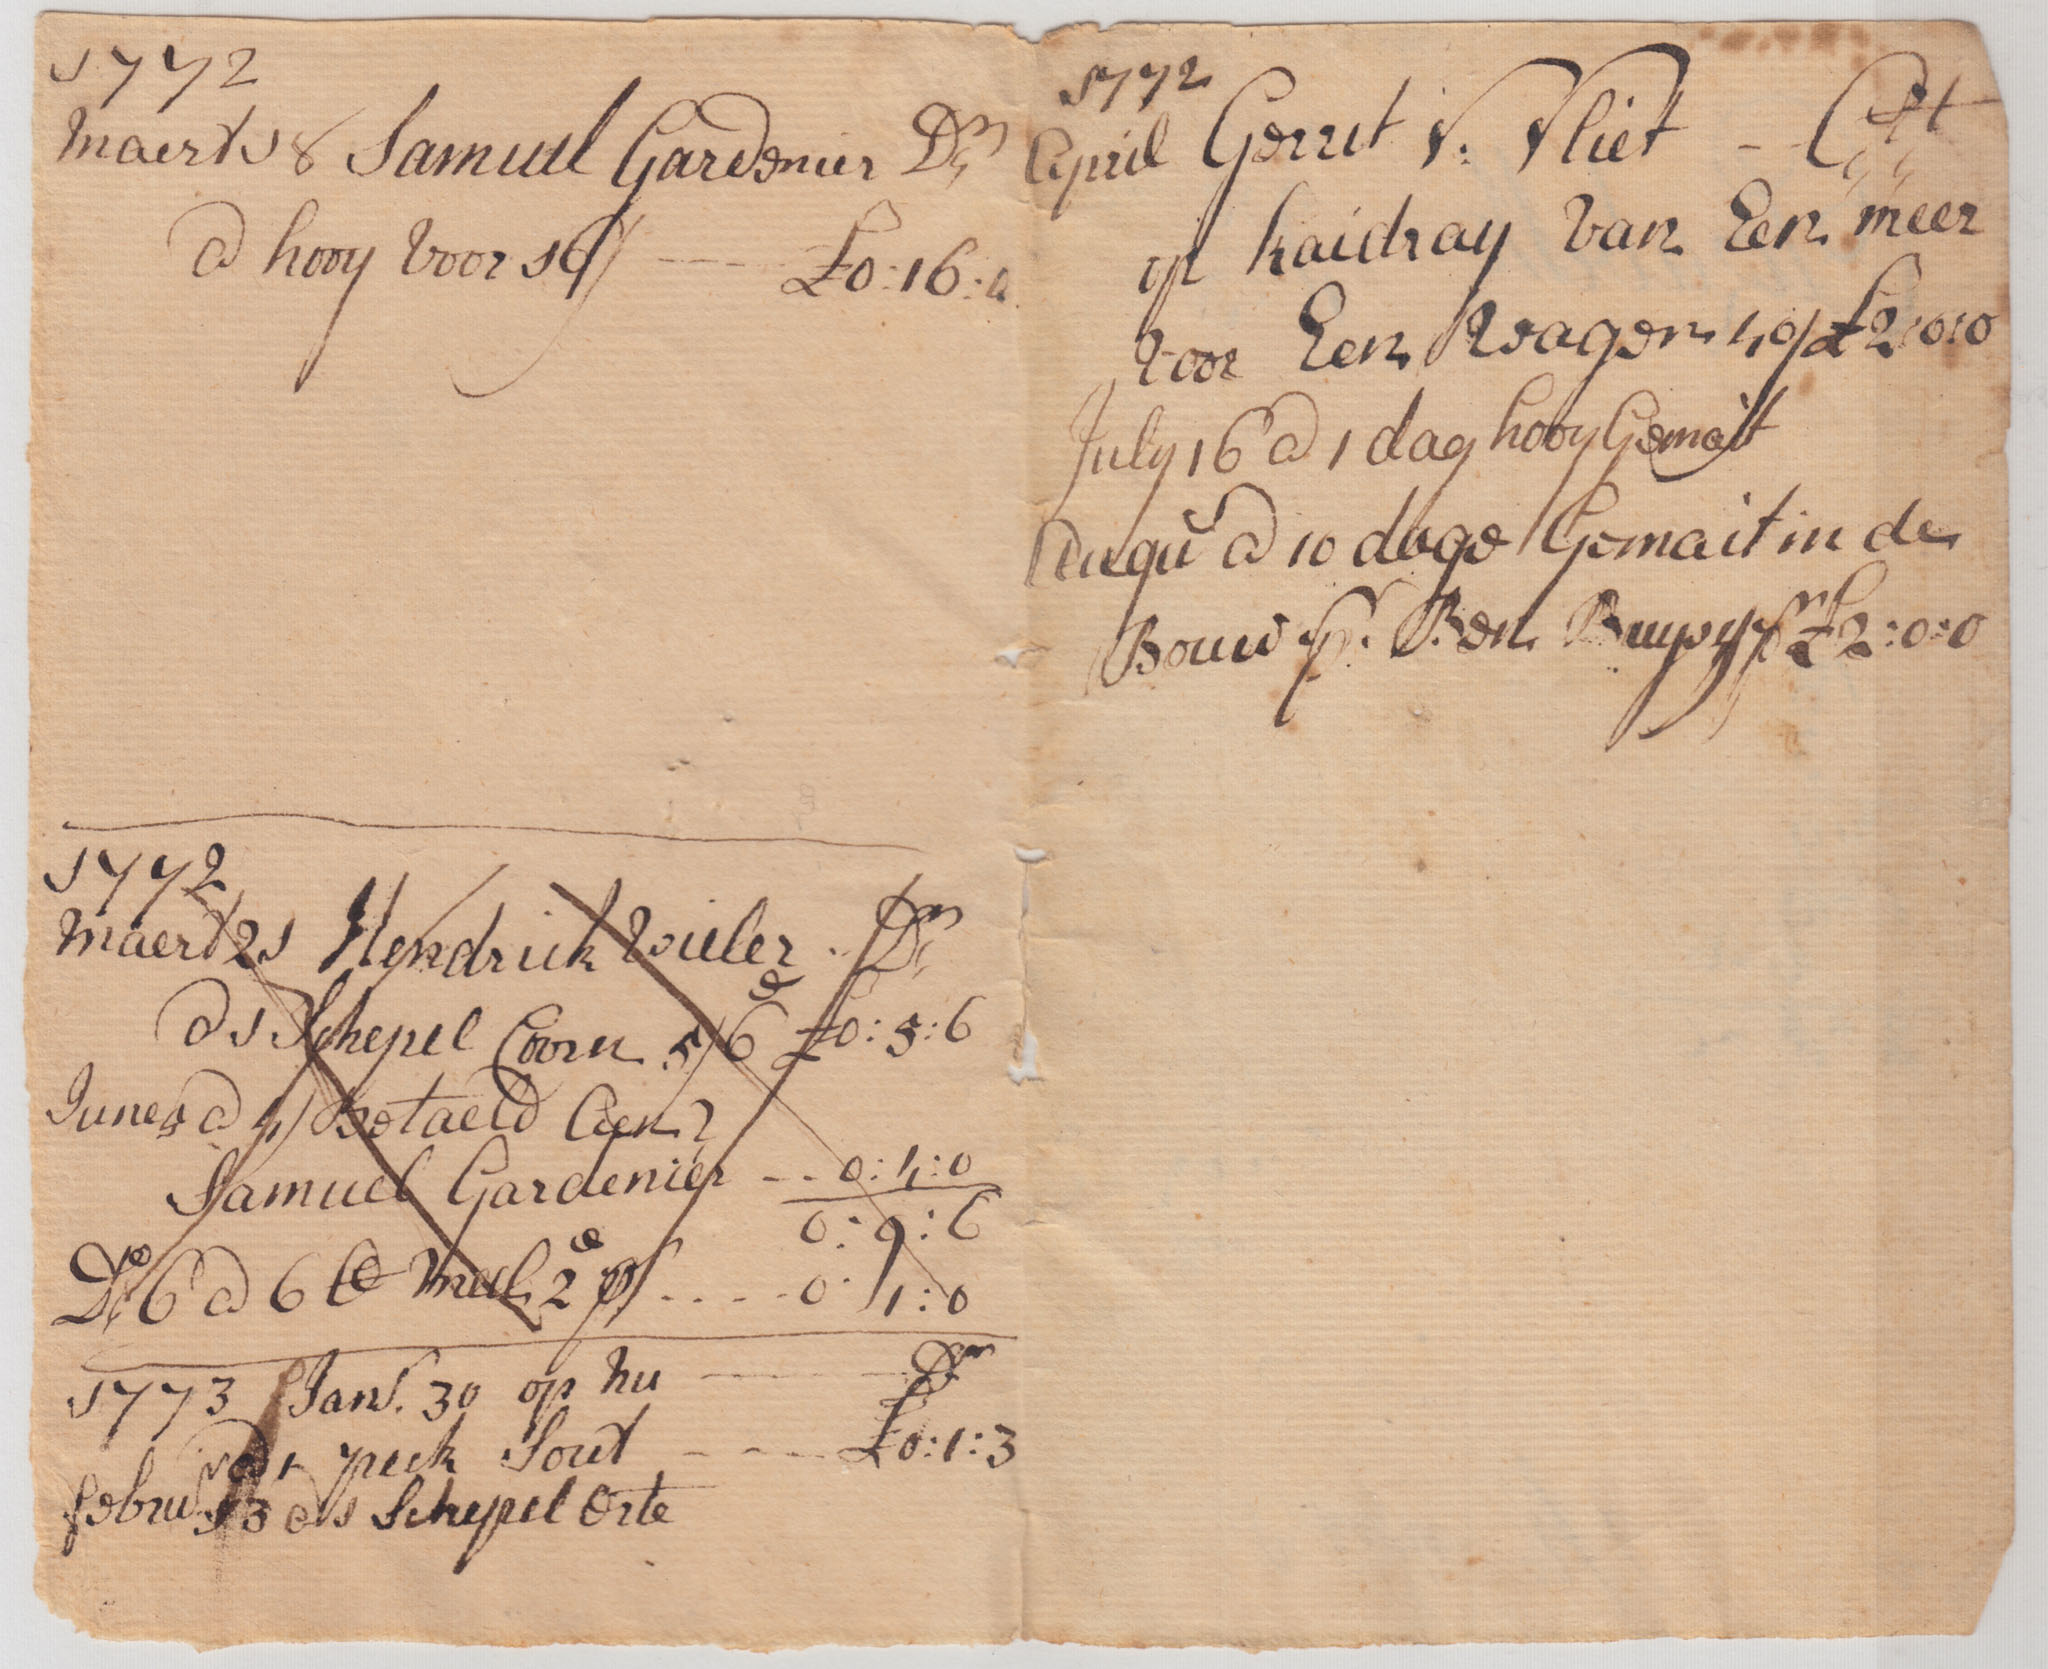 1772
Maert 18 Samuel Gardenier Dr
@ hooy voor 16/ £0:16:0
1772
Maert 21 Hendrick Wieler Dr
@ 1 Schepel Coorn 5/6 £0:5:6
June 5 @ 4/ Betaeld Aen
Samuel Gardenier 0:4:0
0:9:6
De 6 @ 6 lb Meel 2d p 0:1:0
1773 Jan. 30 op nu Dr
@ 1 peck Sout £0:1:3
febru 13 @ 1 Schepel Orte
1772
April Gerrit V. Vliet Cr
op haidray van Een meer
voor Een Wagen 40/ £2:0:0
July 16 @ 1 dag hooy Gemait
Augu @ 10 dage Gemait in de
Bouw Ben £2:0:0